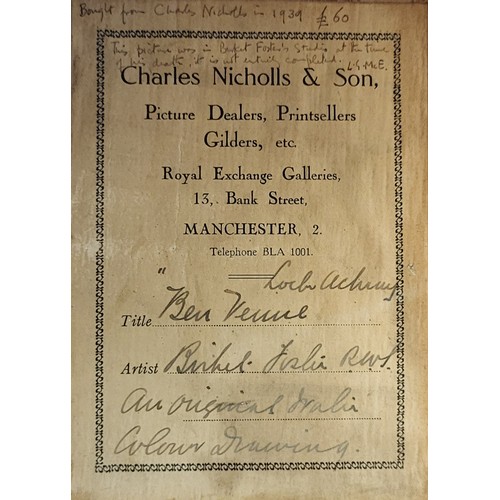 Bought from Charles Nicholls in 1939 £60
This picture was in Birket Foster's Studio at the time
of his death, it is not entirely completed. L.G.McE.
Charles Nicholls & Son,
Picture Dealers, Printsellers
Gilders, etc.
Royal Exchange Galleries,
13, Bank Street,
MANCHESTER, 2.
Telephone BLA 1001.
Loch Achray
Title "Ben Venue
Artist Birket Foster R.W.S.
An original Water
Colour Drawing.